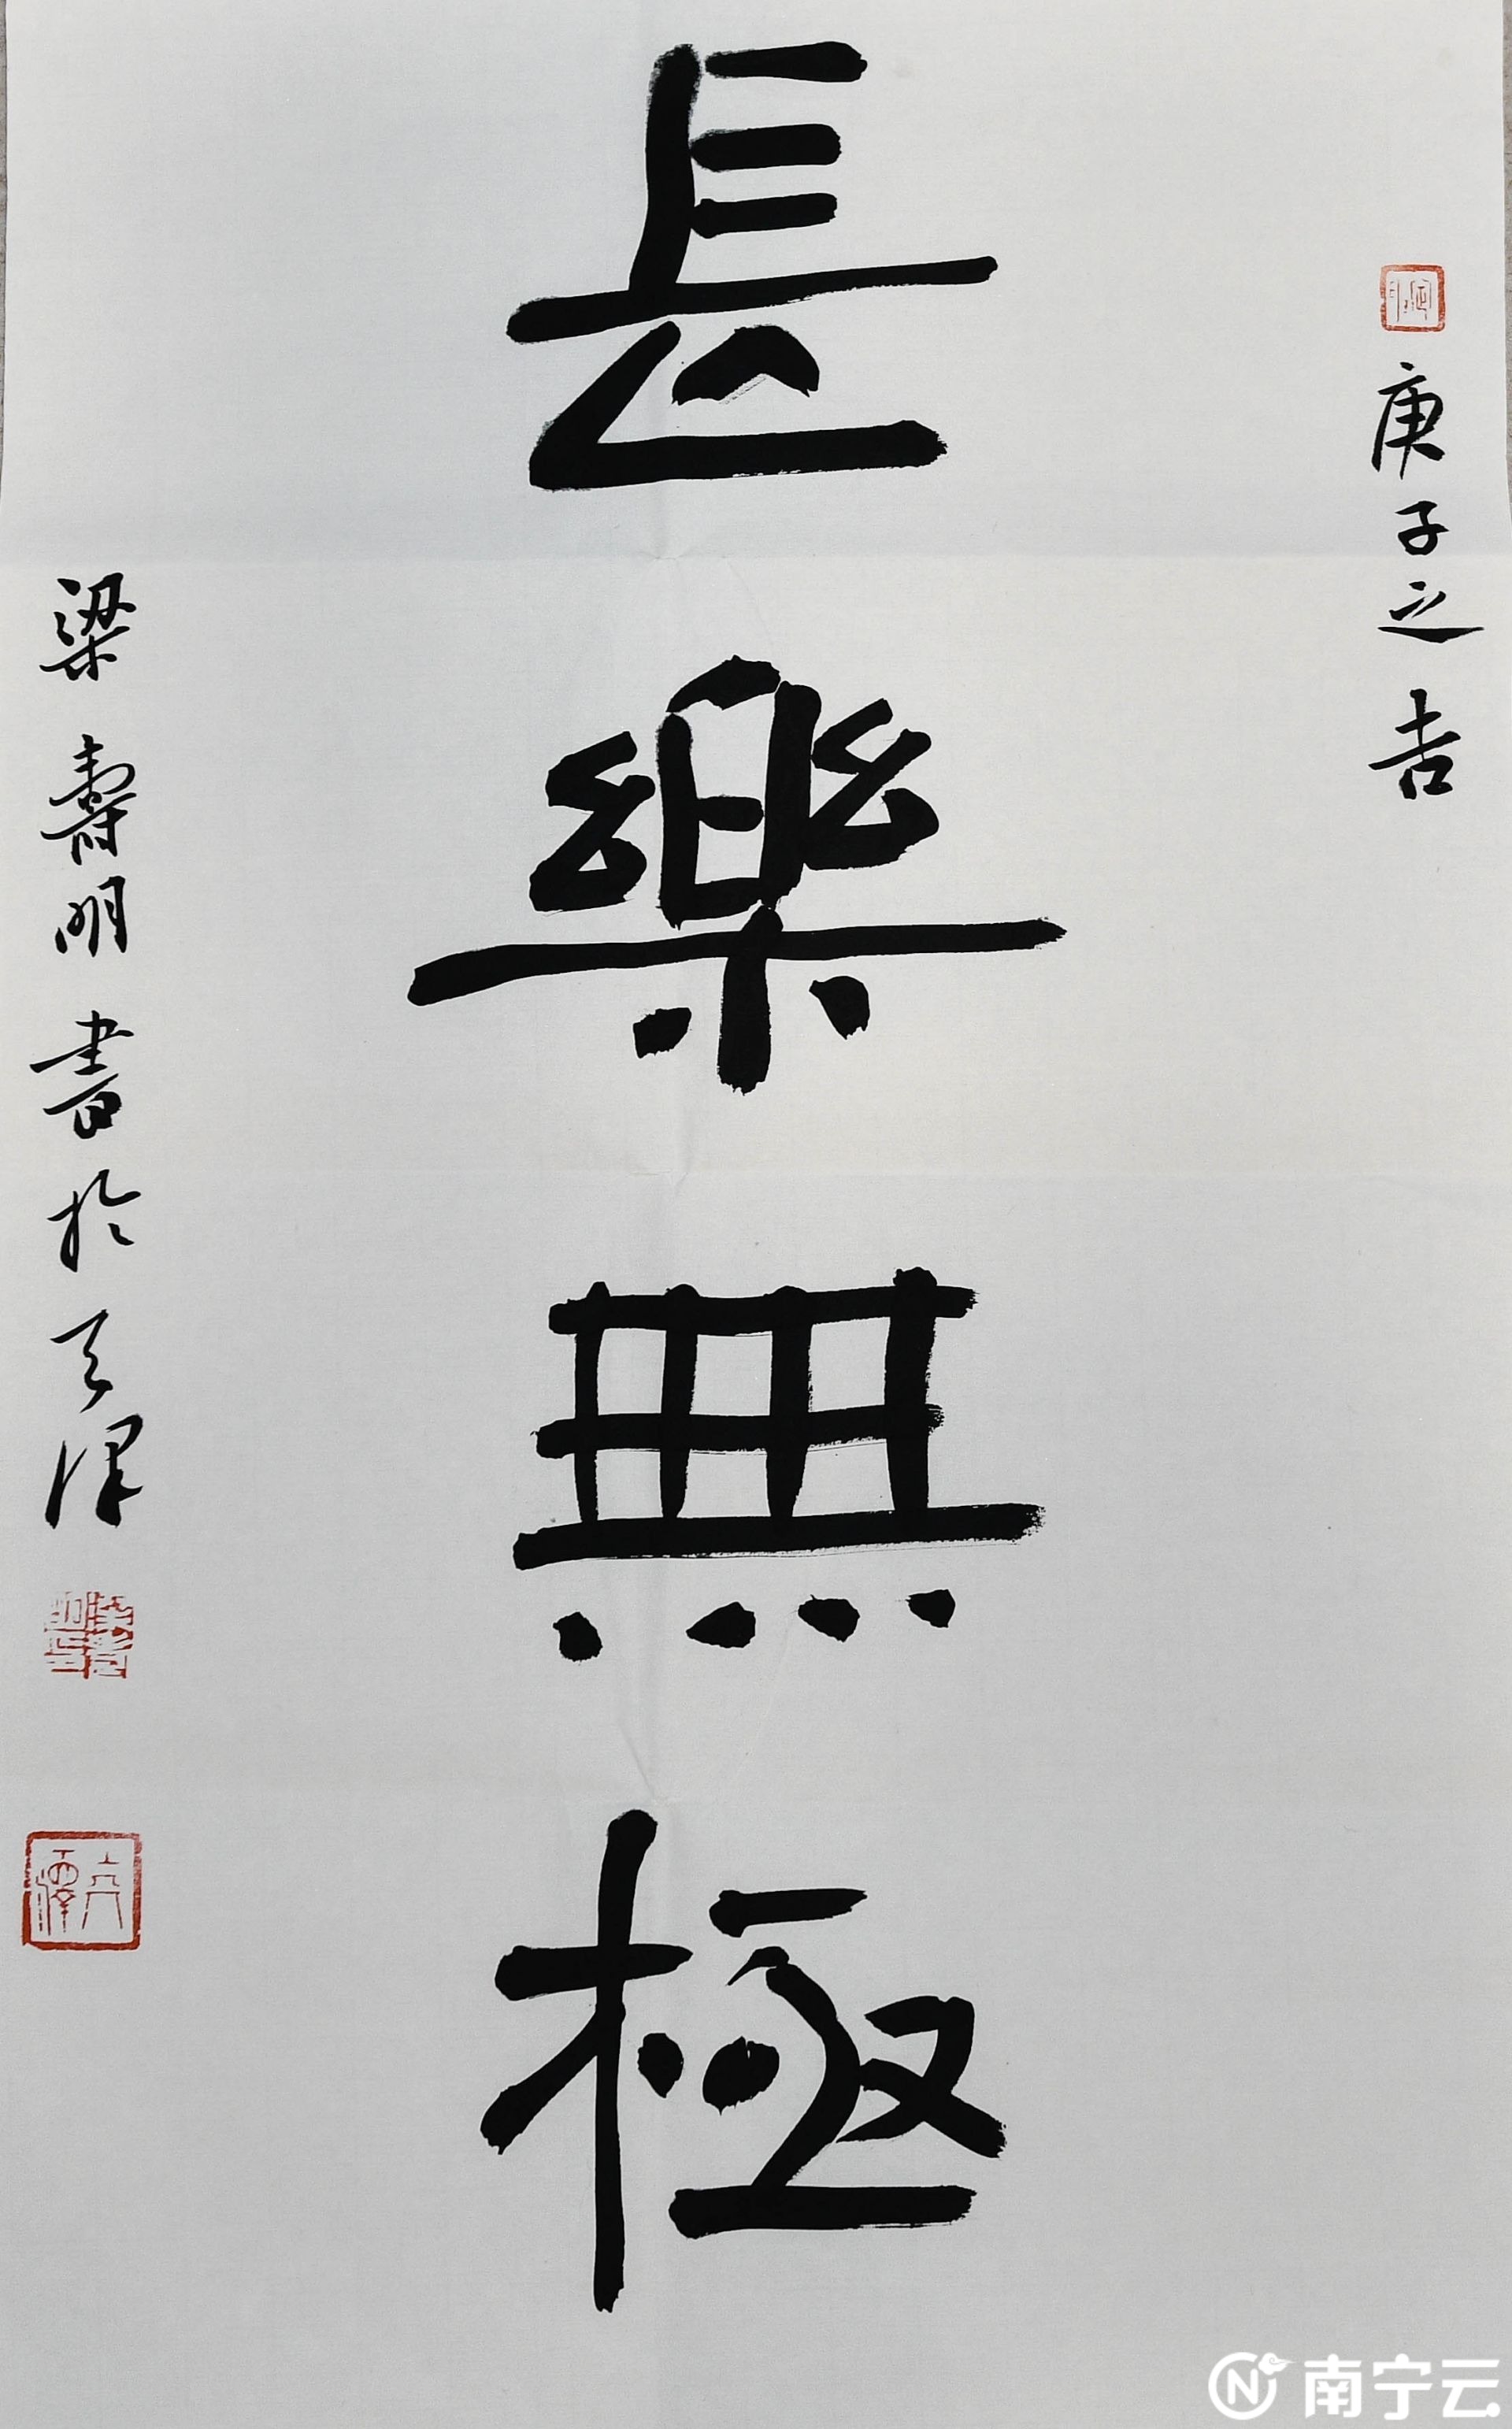 庚子之吉
長樂無極
梁壽明書於天津
南宁云